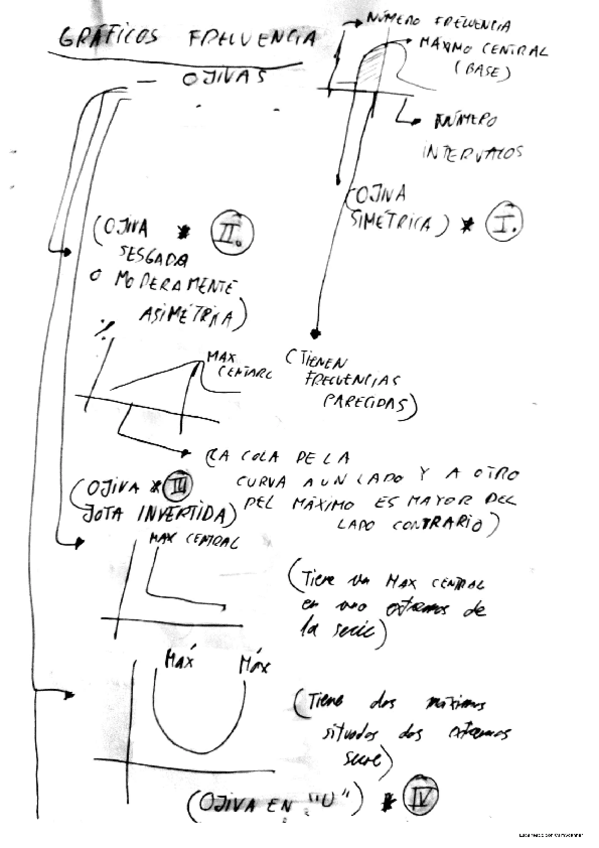 GRÁFICOS FRECUENCIA
— OJIVAS
NÚMERO FRECUENCIA
MÁXMO CENTRAL
(BASE)
NÚMERO
INTERVALOS
(OJIVA
SIMÉTRICA) * I.
(OJIVA * II.
SESGADA
O MODERAMENTE
ASIMÉTRIKA)
%
MAX
CENTARL
(TIENEN
FRECUENCIAS
PARECIDAS)
(LA COLA DE LA
CURVA A UN LADO Y A OTRO
DEL MÁXIMO ES MAYOR DEL
LADO CONTRARIO)
(OJIVA * III
JOTA INVERTIDA)
MAX CENTRAL
(Tiene un MAX CENTRAL
en uno extremos de
la serie)
MAX MÁX
(Tiene dos máximos
situados dos extremos
serie)
(OJIVA EN "U") * IV